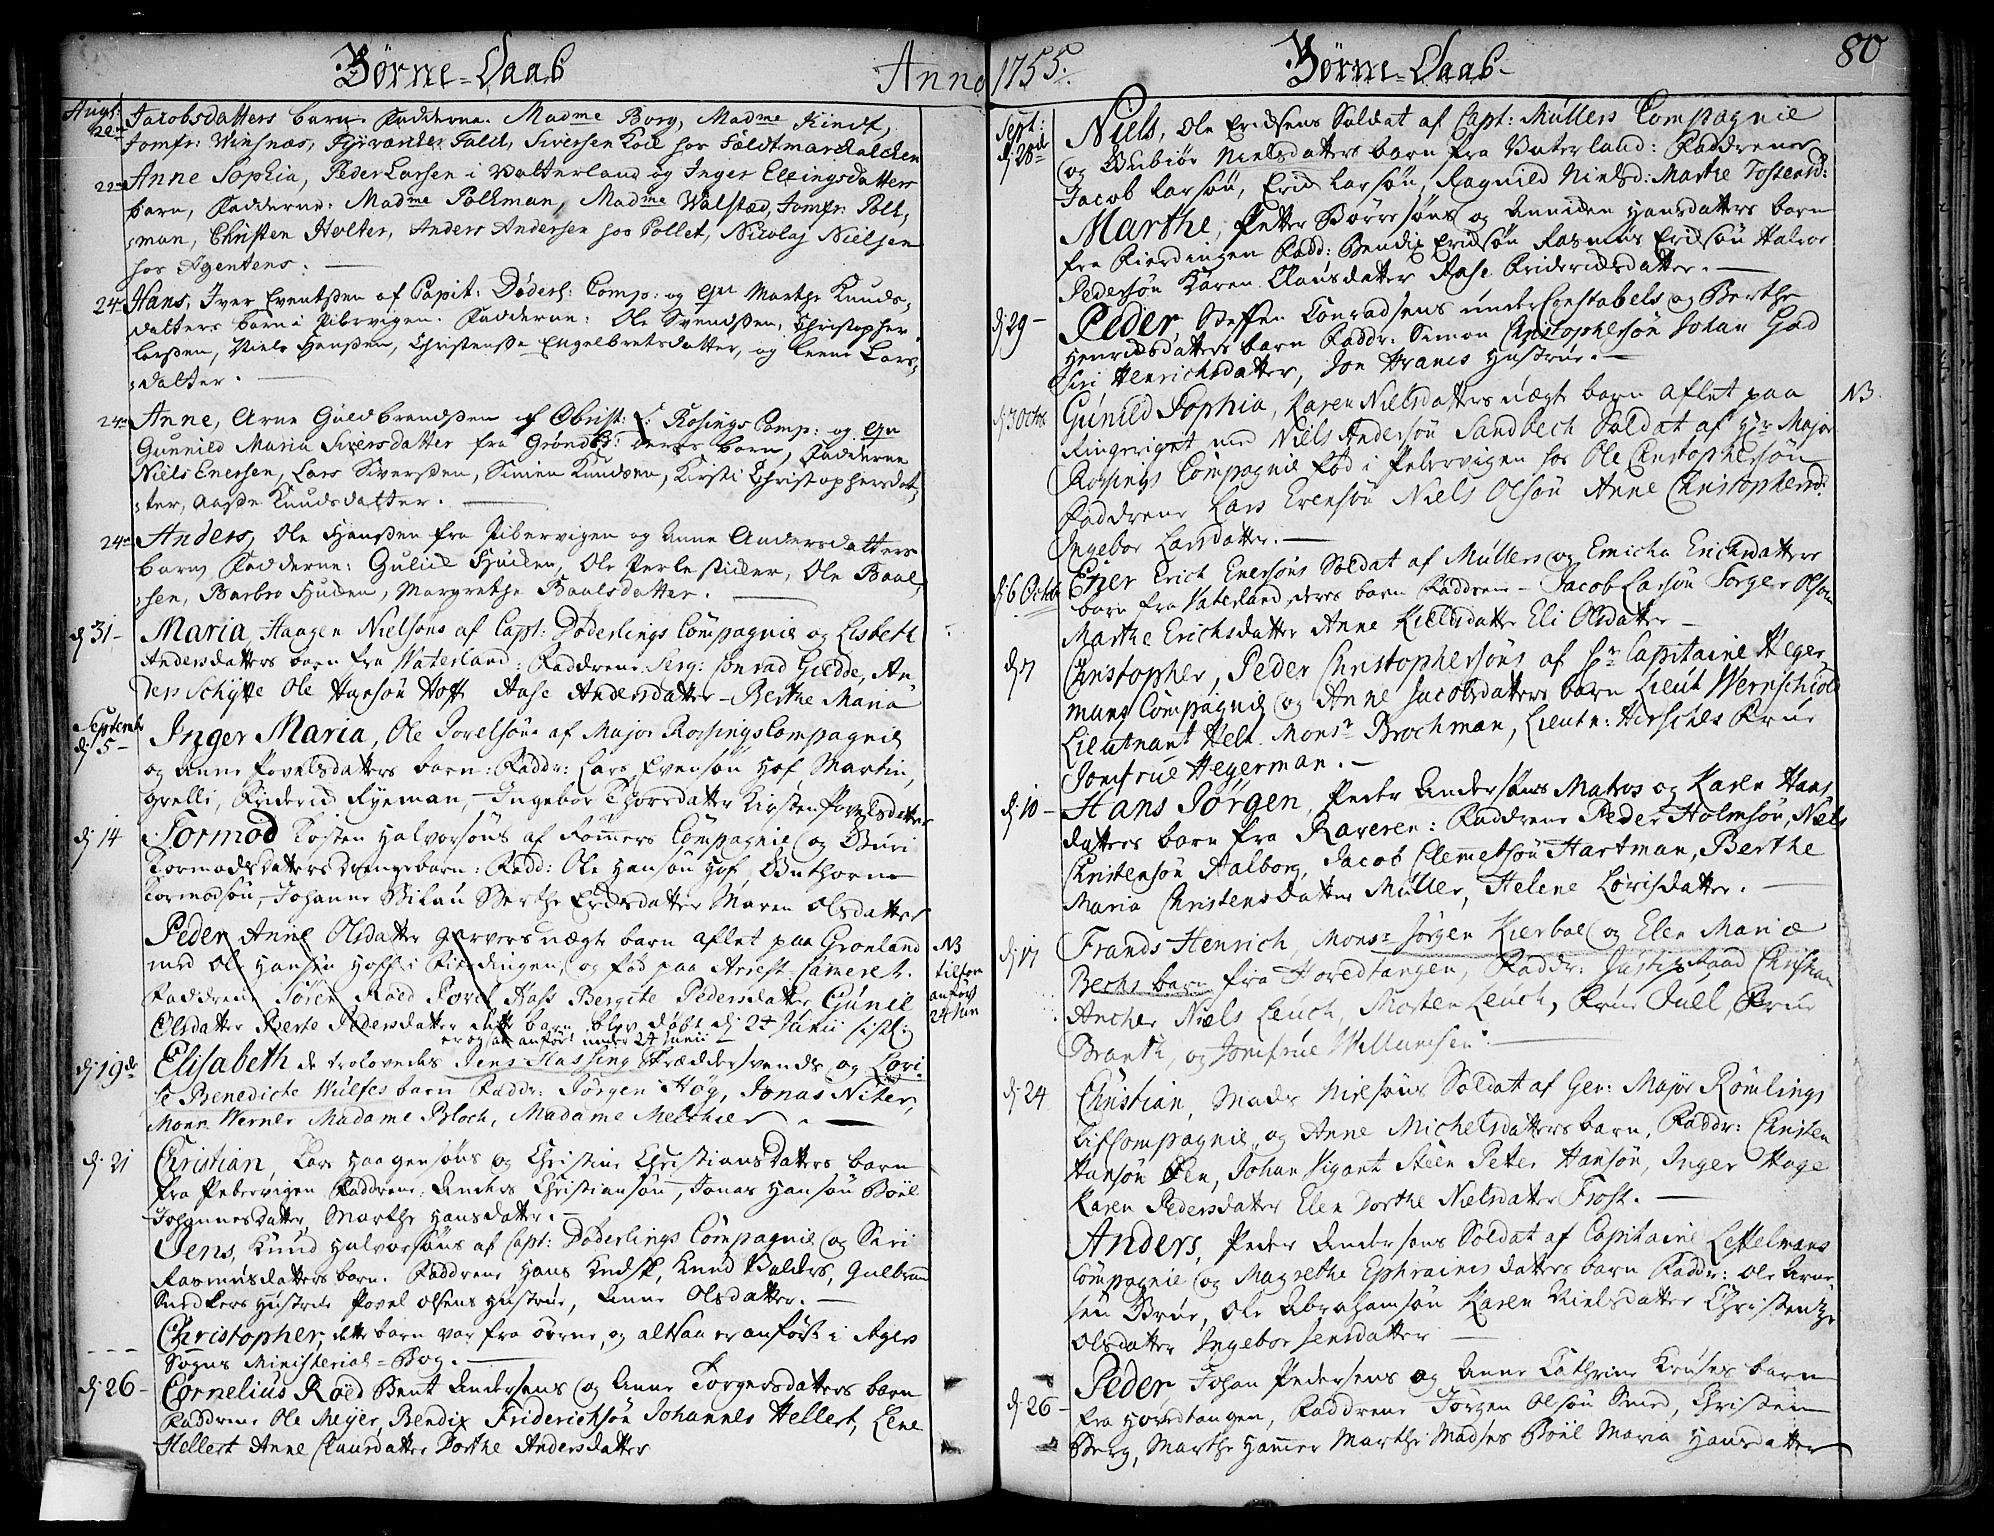 Børne-Daab
Anno 1755.
Børne-Daab
80
Augt:
22de
Jacobsdatters barn. Fadderne: Madme Borg, Madme Kindt,
Jomfr: Winsnæs, Fyrvandter Falck, Siversen Kock hos Feldtmarchalchen
22de Anne Sophia, Peder Larsen i Vatterland og Inger Ellingsdatters
barn, Fadderne: Madme Polkman, Madme Walstad, Jomfr: Polk-
man, Christen Holter, Anders Andersen hos Pollet, Nicolaj Nielsen
hos Agentens.
24de Hans, Iver Eventsen af Capit: Døderl: Comp: og Marthe Knuds-
datters barn i Pibervigen. Fadderne: Ole Svendsen, Christopher
Larsen, Niels Hansen, Christense Engelbretsdatter, og Leene Lars-
datter.
24de Anne, Arne Guldbrandsen af Obrist: L: Rosings Comp: og
Gunnild Maria Siversdatter fra Grønl: deres barn, Fadderne
Niels Enersen, Lars Siversen, Simen Knudsen, Kirsti Christophersdat-
ter, Aase Knudsdatter.
24de Anders, Ole Hansen fra Pibervigen og Anne Andersdatters
barn, Fadderne: Gulich Huden, Ole Perlesticker, Ole Paul-
sen, Barbro Huden, Margrethe Paulsdatter.
dj 31 - Maria, Haagen Nielsøns af Capt: Døderlings Compagnie og Lisbeth
Andersdatters barn fra Vaterland: Faddrene Serg: Conrad Giedde, An-
ders Schytte Ole Hansøn Hoff Aase Andersdatter - Berthe Maria
Septembr
dj 5 - Inger Maria, Ole Povelsøns af Major Rossings Compagnie
og Anne Povelsdatters barn: Faddr: Lars Evensøn Hof Martin
Grelli, Friderich Ryeman, - Ingebor Thorsdatter Kirsten Povelsdatter
dj 14 Tormod Tosten Halvorsøns af Rømers Compagnie og Guri
Tormodsdatters drengebarn: Fadd: Ole Hansøn Hof, Guthorm
Tormodsøn, Johanne Bilau Berthe Ericksdatter Maren Olsdatter
Peder Anne Olsdatter Garvers uægte barn aflet paa Grønland
med Ole Hansøn Hoff i Fierdingen, og fød paa Arrest-Cameret.
Faddrene Søren Røed Povel Hass Bergite Pedersdatter Gunil
Olsdatter Berte Pedersdatter dette barn blev døbt dj 24 Junii sidstl:
er ogsaa anført under 24 Junii
NB
tilforn
anført
24 Jun
dj 19de Elisabeth de trolovedes Jens Hassing Skreddersvends og Lovi-
se Benediche Wulfes barn Faddr: Jørgen Høg, Jonas Niker,
Monr. Werner Madame Bloch, Madame Melthier
dj. 21 Christian, Lars Haagensøns og Christine Christiansdatters barn
fra Pebervigen Faddrene: Anders Christiansøn, Jonas Hansøn Boel
Johannesdatter, Marthe Hansdatter.
Jens, Knud Halvorsøns af Capt: Døderlings Compagnie og Siri
Rasmusdatters barn. Faddrene Hans Knudsk, Knud Valders, Gulbran
Snedkers Hustrue Povel Olsens Hustrue, Anne Olsdatter.
Christopher, dette barn var fra Øerne, og altsaa er anført i Agers
Sogns Ministerial-Bog.
dj 26 - Cornelius Røed Bent Andersens og Anne Torgersdatters barn
Faddrene Ole Meyer, Bendix Friderichsøn Johannes Hellert, Lene
Hellert Anne Claursdatter Dorthe Andersdatter
Sept:
dj 28de Niels, Ole Ericksens Soldat af Capt: Müllers Compagnie
og Gubiør Nielsdatters barn fra Vaterland: Faddrene
Jacob Larsøn, Erick Larsøn, Ragnild Nielsd: Marthe Tostensd:
Marthe, Petter Børresøns og Anniken Hansdatters barn
fra Fierdingen Fadd: Bendix Ericksøn Rasmus Ericksøn Halvor
Pedersøn Karen Clausdatter Aase Friderichsdatter.
dj 29 - Peder, Steffen Conradsens under Constabels og Berthe
Henrichsdatters barn Faddr: Simon Christophersøn Johan Gad
Siri Henrichsdatter, Jon Franes Hustrue.
dj 3 Octb Gunild Sophia, Karen Nielsdatters uægte barn aflet paa
NB.
Ringeriget med Niels Andersøn Sandbech Soldat af Hr Major
Rossings Compagnie fød i Pebervigen hos Ole Christophersøn
Faddrene Lars Evensøn Niels Olsøn Anne Christophersd:
Ingebor Larsdatter.
dj 6 Octob Ejer Erich Enersøns Soldat af Müllers og Emicha Erichsdatters
barn fra Vaterland, deres barn Faddrene - Jacob Larsøn Torger Olsøn
Marthe Erichsdatter Anne Kieldsdatter Eli Olsdatter
dj 7 Christopher, Peder Christophersøns af Hr Capitaine Heger
mans Compagnie og Anne Jacobsdatters barn Lieut Wernschiold
Lieutnant Helt. Monsr Brochman, Lieutn: Hersches Frue
Jomfrue Hegerman.
dj 10 - Hans Jørgen, Peder Andersøns Matros og Karen Hans
datters barn fra Raveren: Faddrene Peder Holmsøn, Niels
Christensøn Aalborg, Jacob Clemetsøn Hartman, Berthe
Maria Christensdatter Müller, Helene Lørisdatter.
dj 17 Frands Henrich, Monsr Jørgen Kierboe og Elen Mariæ
Bechs barn fra Hovedtangen, Faddr: Justiz Raad Christian
Ancher Niels Leuch, Morten Leuch, Frue Juell, Frue
Branth, og Jomfrue Willumsen.
dj 24 Christian, Mads Nielsøns Soldat af Gen: Major Rømlings
LifCompagnie, og Anne Michelsdatters barn, Faddr: Christen
Hansøn Øen, Johan Vigant Steen Peter Hansøn, Inger Hage
Karen Pedersdatter Elen Dorthe Nielsdatter Frost.
Anders, Peder Andersøns Soldat af Capitaine Lettelmans
Compagnie og Magrethe Ephraims datters barn Faddr: Ole Arne-
sen Brue, Ole Abrahamsøn Karen Nielsdatter Christentze
Olsdatter Ingebor Jensdatter
dj 26 - Peder Johan Pedersens og Anne Cathrine Kruses barn
fra Hovedtangen, Faddrene Jørgen Olsøn Smed, Christen
Berg, Marthe Hamer Marthe Madses Boel Maria Hansdatter